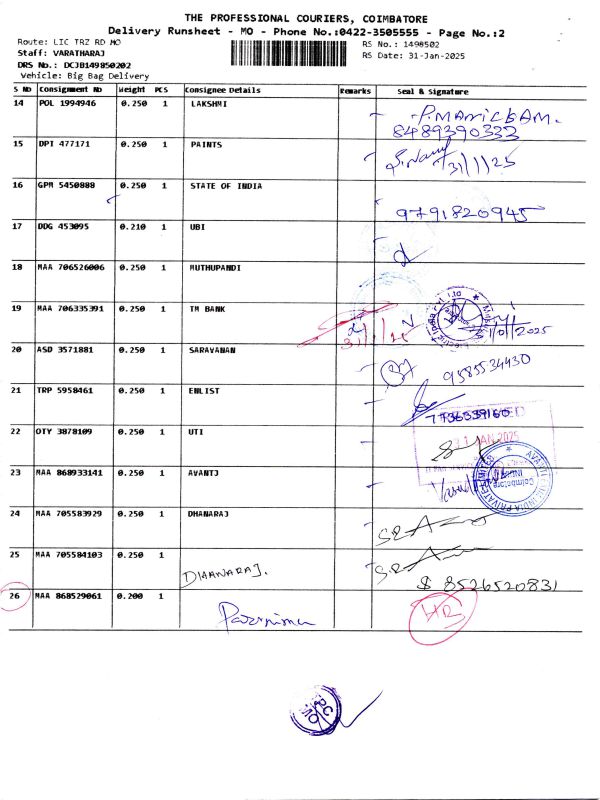 THE PROFESSIONAL COURIERS, COIMBATORE
Delivery Runsheet - MO - Phone No.:0422-3505555 - Page No.:2
Route: LIC TRZ RD MO
RS No.: 1498502
Staff: VARATHARAJ
RS Date: 31-Jan-2025
DRS No.: DCJB149850202
Vehicle: Big Bag Delivery
S No Consignment No Weight PCS Consignee Details Remarks Seal & Signature
14 POL 1994946 0.250 1 LAKSHMI
P.MANICKAM.
8489390333
15 DPT 477171 0.250 1 PAINTS
31/1/25
16 GPM 5450888 0.250 1 STATE OF INDIA
9791820945
17 DDG 453095 0.210 1 UBI
18 MAA 706526006 0.250 1 MUTHUPANDI
19 MAA 706335391 0.250 1 TM BANK
20 ASD 3571881 0.250 1 SARAVANAN
9585534430
21 TRP 5958461 0.250 1 ENLIST
7736539160
22 OTY 3878109 0.250 1 UTI
31 JAN 2025
23 MAA 868933141 0.250 1 AVANTJ
24 MAA 705583929 0.250 1 DHANARAJ
25 MAA 705584103 0.250 1
DHANARAJ.
8526520831
26 MAA 868529061 0.200 1